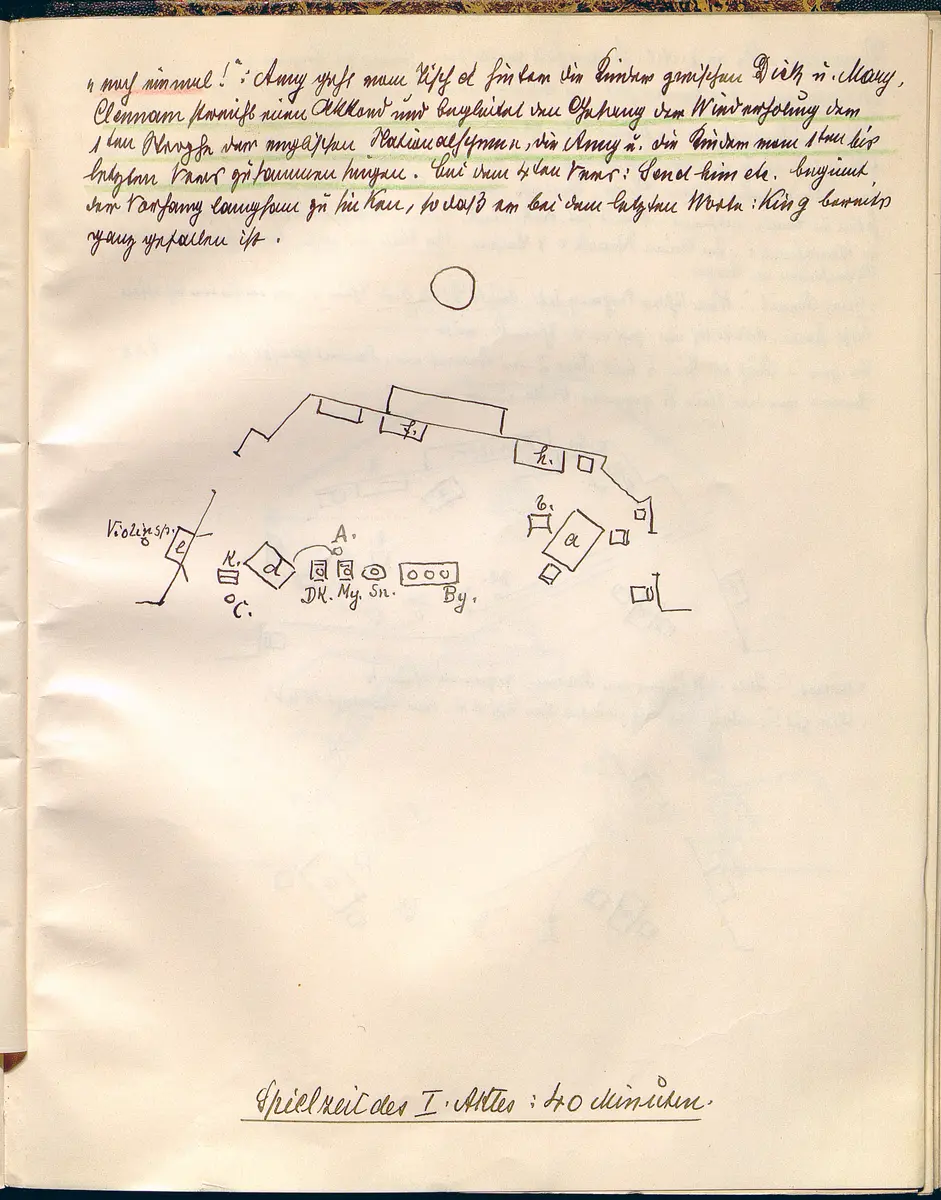 „noch einmal!“: Amy geht vom Tisch d hinter die Kinder zwischen Dick u. Mary,
Clennam streicht einen Akkord und begleitet den Gesang der Wiederholung der
1ten Strophe der englischen Nationalhymne, die Amy u. die Kinder vom 1ten bis
letzten Vers zusammen singen. Bei dem 4ten Vers: Send him etc. beginnt
der Vorhang langsam zu sinken, so daß er bei dem letzten Worte: King bereits
ganz gefallen ist.
f.
h.
Violinsp.
e
K.
d
A.
b.
a
C.
DK. My. Sn. By.
Spielzeit des I. Aktes: 40 Minuten.